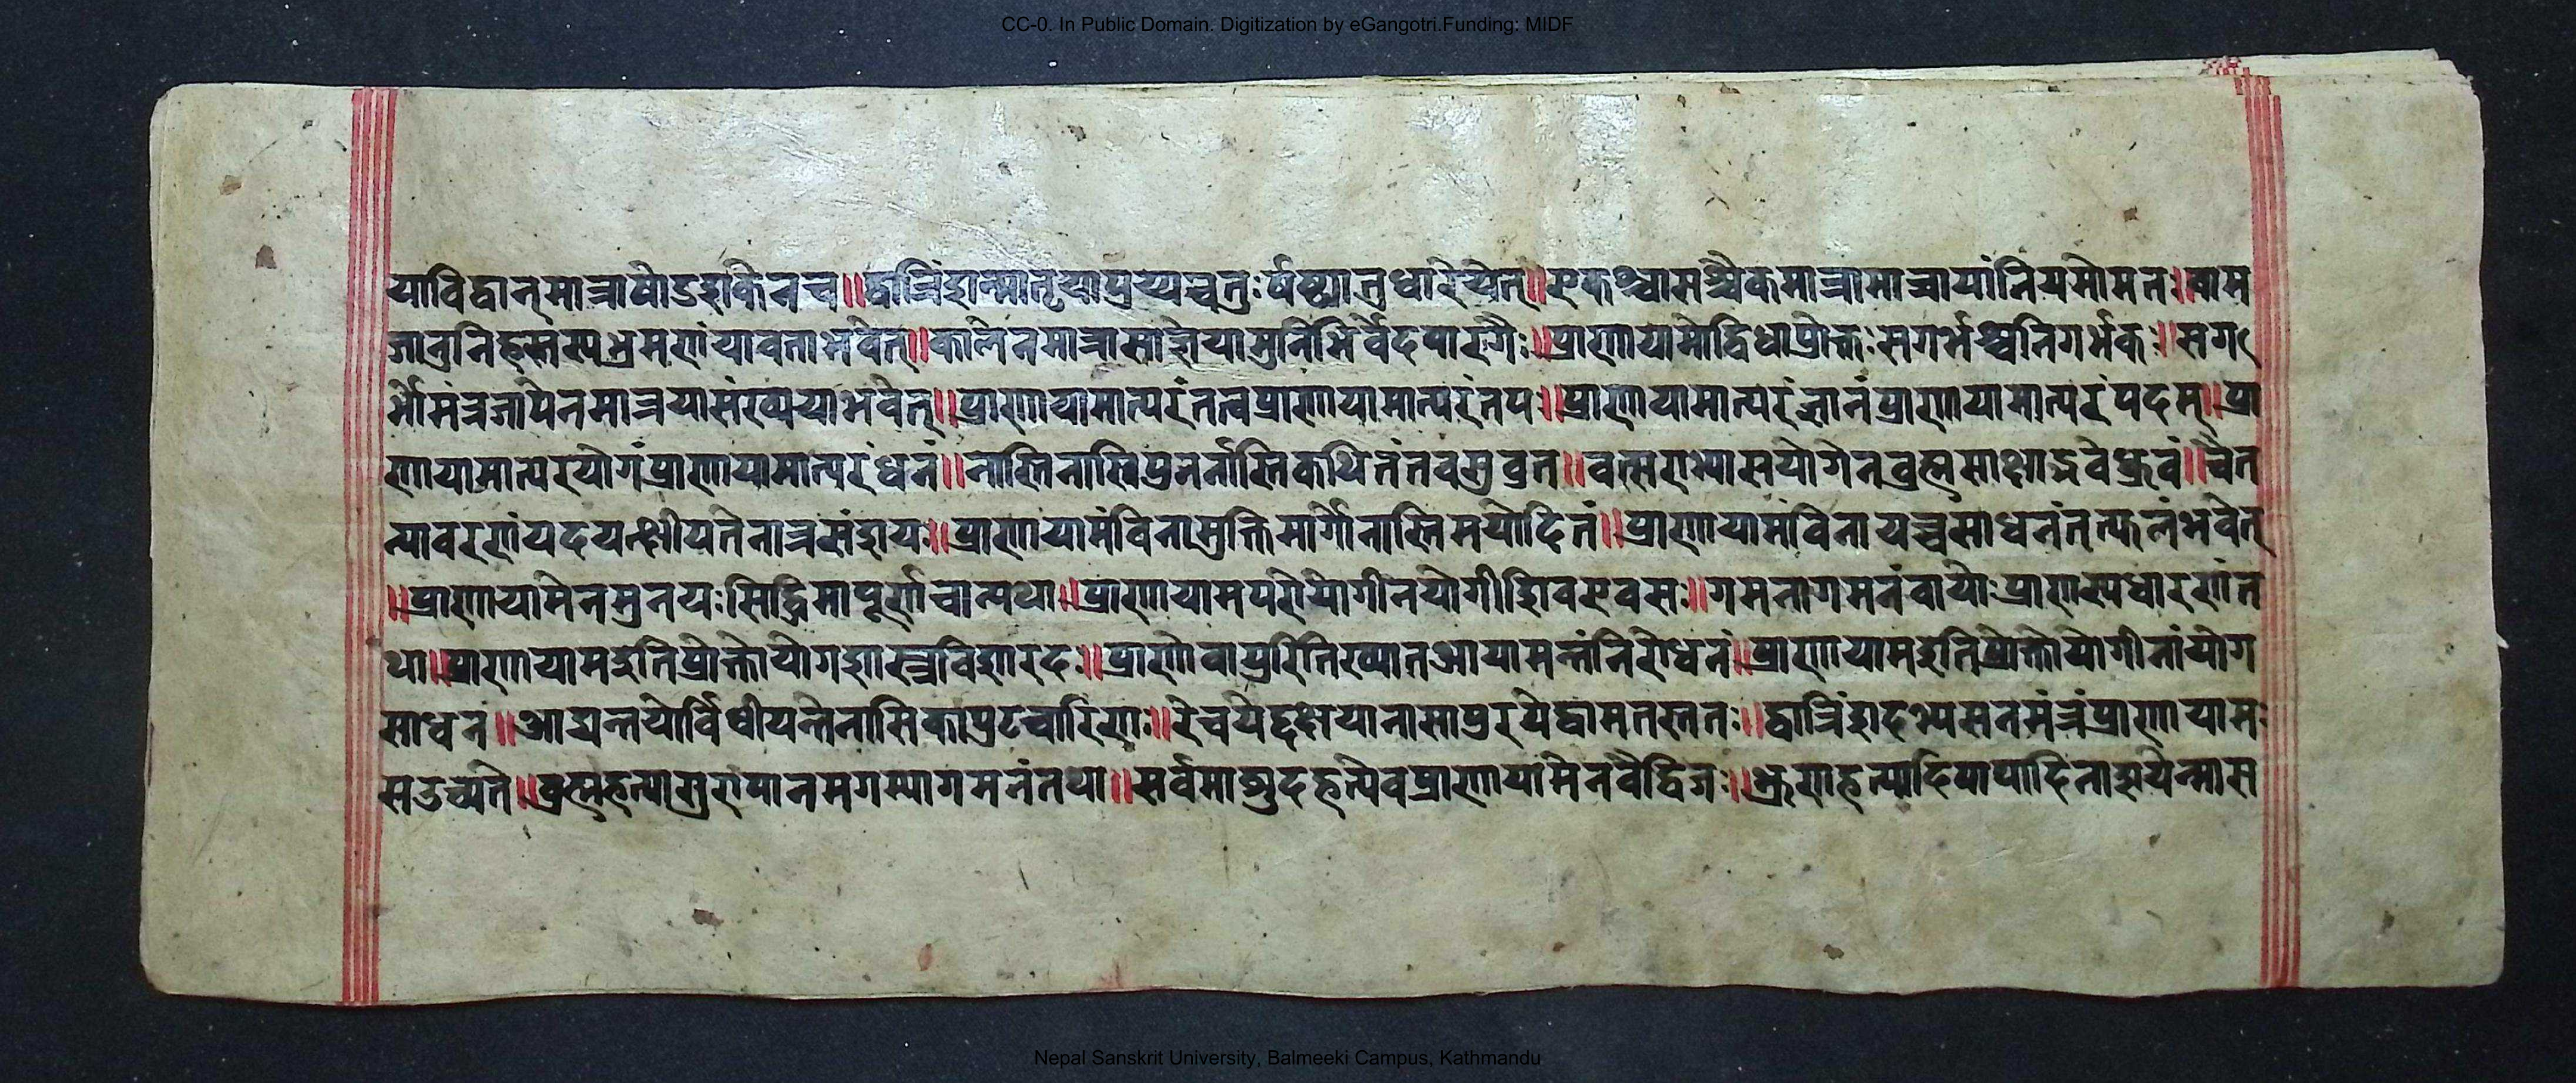 CC-0. In Public Domain. Digitization by eGangotri.Funding: MIDF
याविद्वान्मात्राषोडशकेनच॥द्वात्रिंशन्मातृयापूरय्यचतुःर्षष्ठ्यातुधारयेत्॥एकश्वासश्चैकमात्रामात्रायांनियमोमतः॥वाम
जानुनिहस्तस्पभ्रमणंयावताभवेत्॥कालेनमात्रासाज्ञेयामुनिभिर्वेदपारगैः॥प्राणायामोद्विधाप्रोक्तःसगर्भश्चनिगर्भकः॥सग
र्भोमंत्रजापेनमात्रयासंख्ययाभवेत्॥प्राणायामात्परंतत्वप्राणायामात्परंतपः॥प्राणायामात्परंज्ञानंप्राणायामात्परंपदम्॥प्रा
णायामात्परंयोगंप्राणायामात्परंधनं॥नास्तिनास्तिपुनर्नास्तिकथितंतवसुव्रत॥वत्सराभ्यासयोगेनव्रह्मसाक्षाद्भवेध्रुवं॥चैत
न्यावरणंयदयत्क्षीयतेनात्रसंशयः॥प्राणायामंविनामुक्तिमार्गोनास्तिमयोदितं॥प्राणायामंविनायच्चसाधनंतत्फलंभवेत्
॥प्राणायामेनमुनयःसिद्धिमापूर्णाचान्यथा॥प्राणायामपरोयोगीनयोगीशिवएवसः॥गमनागमनंवायोःप्राणस्यधारणंत
था॥प्राणायामइतिप्रोक्तोयोगशास्त्रविशारदः॥प्राणोवायुरितिख्यातआयामन्तंनिरोधनं॥प्राणायामइतिप्रोक्तोयोगीनांयोग
साधनं॥आद्यन्तयोर्विधीयन्तेनासिकापुटचारिणः॥रेचयेद्दक्षयानासापुरयेद्वामतस्ततः॥द्वात्रिंशदभ्यसनमंत्रंप्राणायामः
सउच्यते॥व्रह्महत्यासुरापानमगम्यागमनंतथा॥सर्वमाशुदहत्येवप्राणायामेनवैद्विजः॥भ्रूणहत्यादिपापादिनाशयेन्मास
Nepal Sanskrit University, Balmeeki Campus, Kathmandu